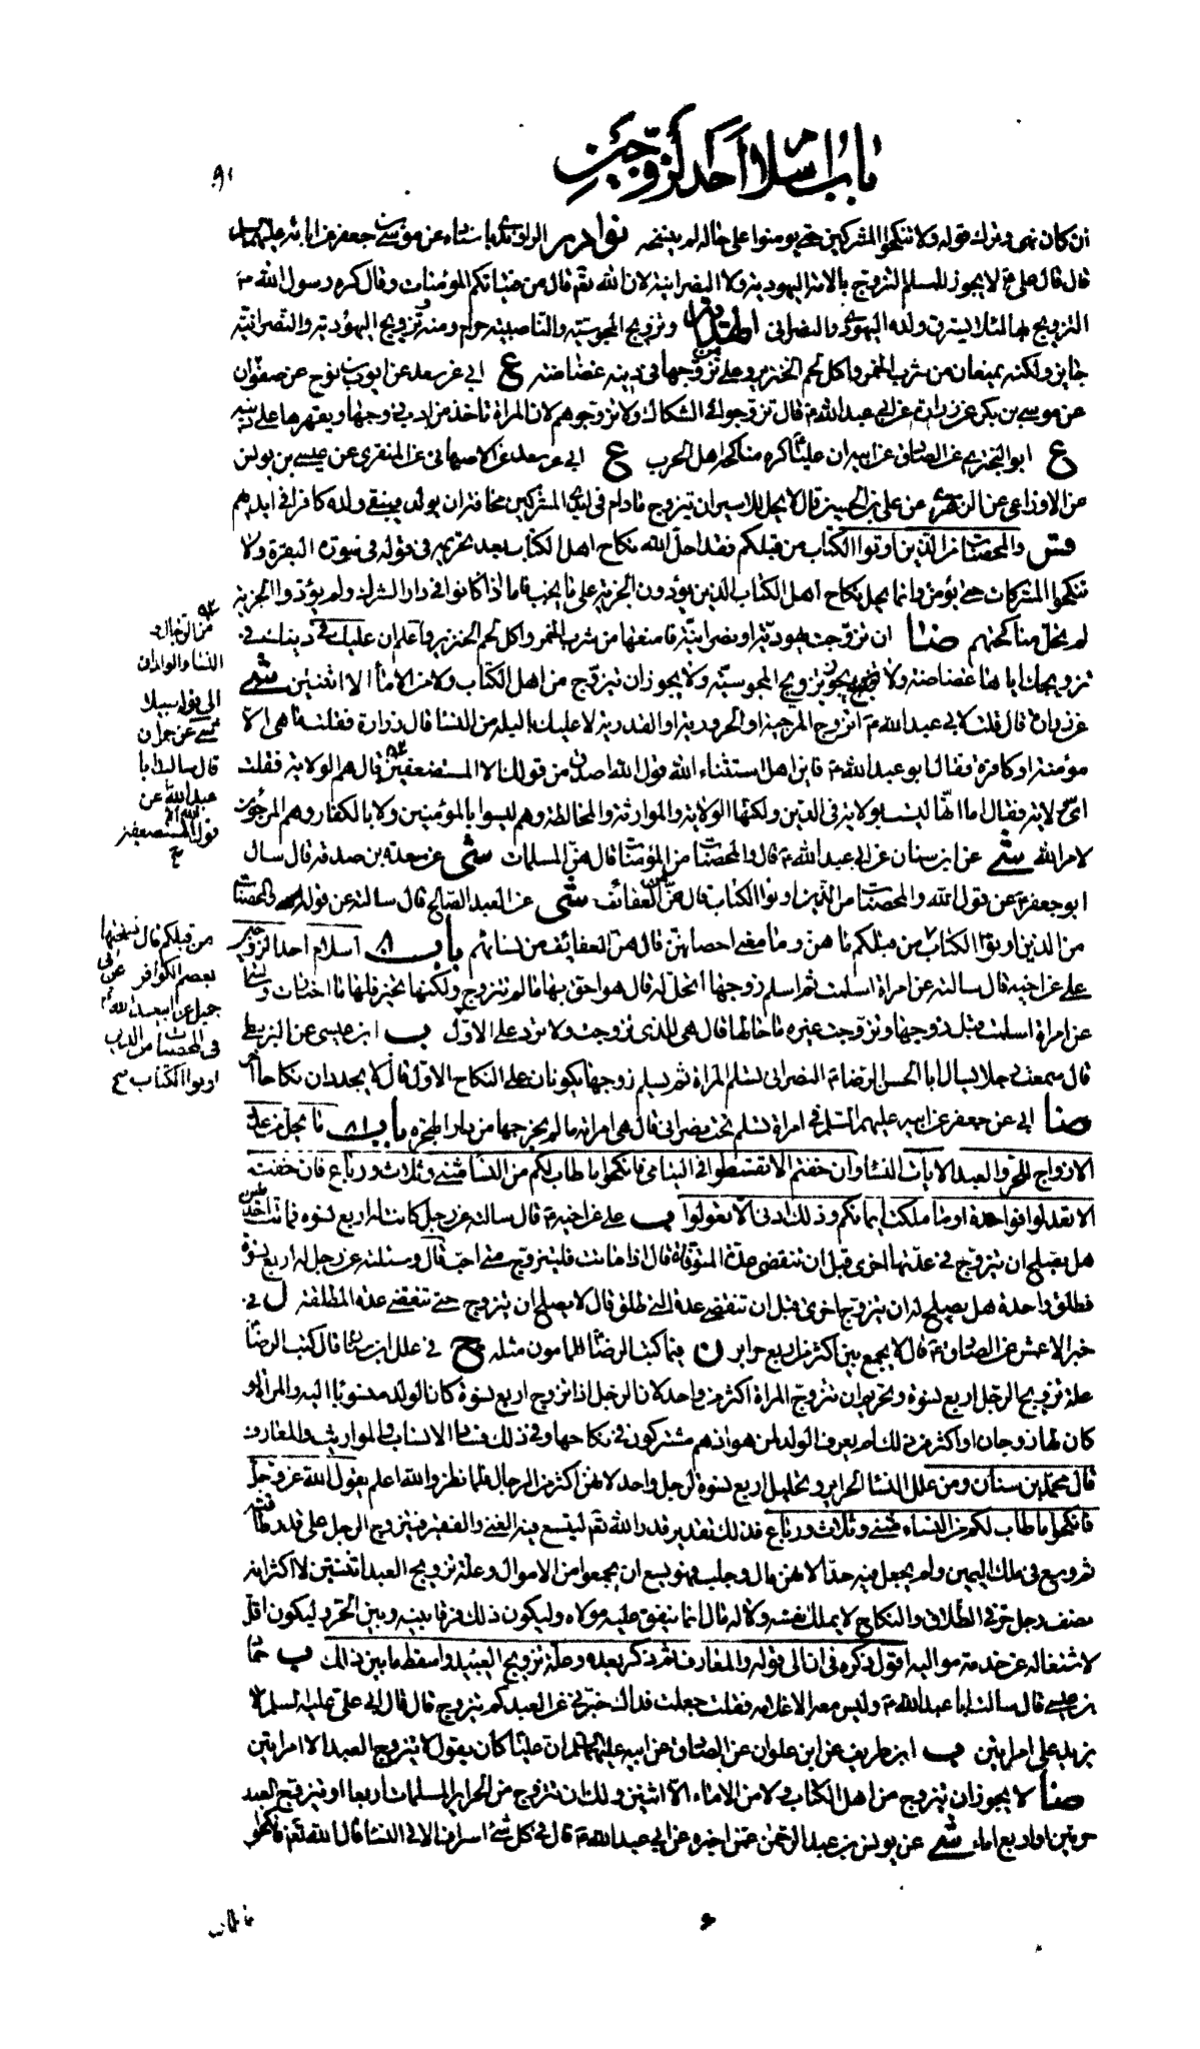 باب اسلام احد الزوجين
٩١
ان كان نهى وترك قوله ولا تنكحوا المشركين حتى يومنوا على حاله لم ينسخه نوادر الراوندى باسناده عن موسى بن جعفر عن ابائه عليهم السلم
قال قال على ع لا يجوز للمسلم التزوج بالامة اليهودية ولا النصرانية لان الله تعم قال من فتياتكم المؤمنات وقال كره رسول الله ص
التزويج بها لئلا يسترق ولده اليهودى والنصرانى الهداية وتزويج المجوسية والناصبية حرام ومنه وتزويج اليهودية والنصرانية
جايز ولكنه يمنعان من شرب الخمر واكل لحم الخنزير وعلى من تزوجها فى دينه غضاضة ع ابى عن سعد عن ايوب بن نوح عن صفوان
عن موسى بن بكر عن زرارة عن ابى عبد الله ع قال تزوجوا فى الشكاك ولا تزوجوهم لان المراة تاخذ من ادب زوجها ويقهرها على دينه
ع ابو البخترى عن الصادق عن ابيه ان عليا كره مناكحة اهل الحرب ع ابى عن سعد عن الاصبهانى عن المنقرى عن عيسى بن يونس
عن الاوزاعى عن الزهرى عن على بن الحسين قال لا يحل للاسير ان يتزوج مادام فى ايدى المشركين مخافة ان يولد له فيبقى ولده كافرا فى ايديهم
فس والمحصنات من الذين اوتوا الكتاب من قبلكم فقد احل الله نكاح اهل الكتاب بعد تحريمه فى قوله فى سورة البقرة ولا
تنكحوا المشركات حتى يؤمن وانما يحل نكاح اهل الكتاب الذين يؤدون الجزية على ما يجب فاما اذا كانوا فى دار الشرك ولم يؤدوا الجزية
لم يحل مناكحتهم ضا ان تزوجت يهودية او نصرانية فامنعها من شرب الخمر واكل لحم الخنزير واعلم ان عليك فى دينك فى
تزويجك اياها غضاضة ولا يجوز تزويج المجوسية ولا يجوز ان تتزوج من اهل الكتاب ولا من الاماء الا اثنتين شى
عن زرارة قال قلت لابى عبد الله ع اتزوج المرجية او الحرورية او القدرية لا عليك بالبله من النسا قال زرارة فقلت ما هى الا
مؤمنة او كافرة فقال ابو عبد الله ع فاين اهل استثناء الله قول الله اصدق من قولك الا المستضعفين قال هم الولاية فقلت
اى ولاية فقال اما انها ليست بولاية فى الدين ولكنها الولاية والموارثة والمخالطة وهم ليسوا بالمؤمنين ولا بالكفار وهم المرجون
لامر الله شى عن ابن سنان عن ابى عبد الله ع قال والمحصنات من المؤمنات قال هن المسلمات شى عن مسعدة بن صدقة قال سال
ابو جعفر ع عن قول الله والمحصنات من الذين اوتوا الكتاب قال هن العفائف شى عن العبد الصالح قال سالته عن قوله والمحصنات
من الذين اوتوا الكتاب من قبلكم ما هن وما معنى احصانهن قال هن العفائف من نسائهم باب ٨ اسلام احد الزوجين
على عن اخيه قال سالته عن امراة اسلمت ثم اسلم زوجها اتحل له قال هو احق بها ما لم تتزوج ولكنها تخير فلها ما اختارت وسالته
عن امراة اسلمت قبل زوجها وتزوجت غيره ما حالها قال هى للذى تزوجت ولا ترد على الاول ب ابن عيسى عن البزنطى
قال سمعت رجلا يسال ابا الحسن الرضا ع النصرانى تسلم المراة ثم يسلم زوجها يكونان على النكاح الاول قال لا يجددان نكاحا آخر
ضا ابى عن جعفر عن ابيه عليهم السلم فى امراة تسلم تحت نصرانى قال هى امراته ما لم يخرجها من دار الهجرة باب ٨١ ما يحل من عدد
الازواج للحر والعبد الايات النساء وان خفتم الا تقسطوا فى اليتامى فانكحوا ما طاب لكم من النسا مثنى وثلاث ورباع فان خفتم
الا تعدلوا فواحدة او ما ملكت ايمانكم وذلك ادنى الا تعولوا ب على عن اخيه ع قال سالته عن رجل كانت له اربع نسوة فماتت احديهن
هل يصلح ان يتزوج فى عدتها اخرى قبل ان تنقضى عدة المتوفاة قال اذا ماتت فليتزوج متى احب قال وسئلته عن رجل له اربع نسوة
فطلق واحدة هل يصلح له ان يتزوج اخرى قبل ان تنقضى عدة التى طلق قال لا يصلح ان يتزوج حتى تنقضى عدة المطلقة ل فى
خبر الاعمش عن الصادق ع قال لا يجمع بين اكثر من اربع حراير ن فيما كتب الرضا للمامون مثله ع فى علل ابن سنان قال كتب الرضا
علة تزويج الرجل اربع نسوة وتحريم ان تتزوج المراة اكثر من واحد لان الرجل اذا تزوج اربع نسوة كان الولد منسوبا اليه والمراة لو
كان لها زوجان او اكثر من ذلك لم يعرف الولد لمن هو اذ هم مشتركون فى نكاحها وفى ذلك فساد الانساب والمواريث والمعارف
قال محمد بن سنان ومن علل النسا الحراير وتحليل اربع نسوة لرجل واحد لانهن اكثر من الرجال فلما نظر والله اعلم يقول الله عز وجل
فانكحوا ما طاب لكم من النساء مثنى وثلاث ورباع فذلك تقدير قدر الله تعم ليتسع فيه الغنى والفقير فيتزوج الرجل على قدر طاقته
ثم وسع فى ملك اليمين ولم يجعل فيه حدا لانهن مال وجلب فهو يسع ان يجمعوا من الاموال وعلة تزويج العبد اثنتين لا اكثر انه
نصف رجل حر فى الطلاق والنكاح لا يملك نفسه ولا له مال انما ينفق عليه مولاه وليكون ذلك فرقا بينه وبين الحر وليكون اقل
لاشتغاله عن خدمة مواليه اقول ذكره فى ن الى قوله والمعارف ثم ذكر بعده وعلة تزويج العبيد واسقط ما بين ذلك ب حماد
بن عيسى قال سالت ابا عبد الله ع وليس معه الا غلامه فقلت جعلت فداك خبرنى عن العبد كم يتزوج قال قال ابى على عليه السلم لا
يزيد على امراتين ب ابن طريف عن ابن علوان عن الصادق عن ابيه عليهم السلم ان عليا كان يقول لا يتزوج العبد الا امراتين
ضا لا يجوز ان يتزوج من اهل الكتاب ولا من الاماء الا اثنتين ولك ان تتزوج من الحراير المسلمات اربعا او يتزوج العبد
حرتين او اربع اماء شى عن يونس بن عبد الرحمن عمن اخبره عن ابى عبد الله ع قال فى كل شئ اسراف الا فى النسا قال الله تعم فانكحوا
من الرجال و
النساء والولدان
الى قوله سبيلا
شى عن حمران
قال سالت ابا
عبد الله عن
قول الله الا المستضعفين
من قبلكم قال نسختها
بعصم الكوافر عن ابى
جميلة عن ابى عبد الله ع
فى المحصنات من الذين
اوتوا الكتاب
ما طاب